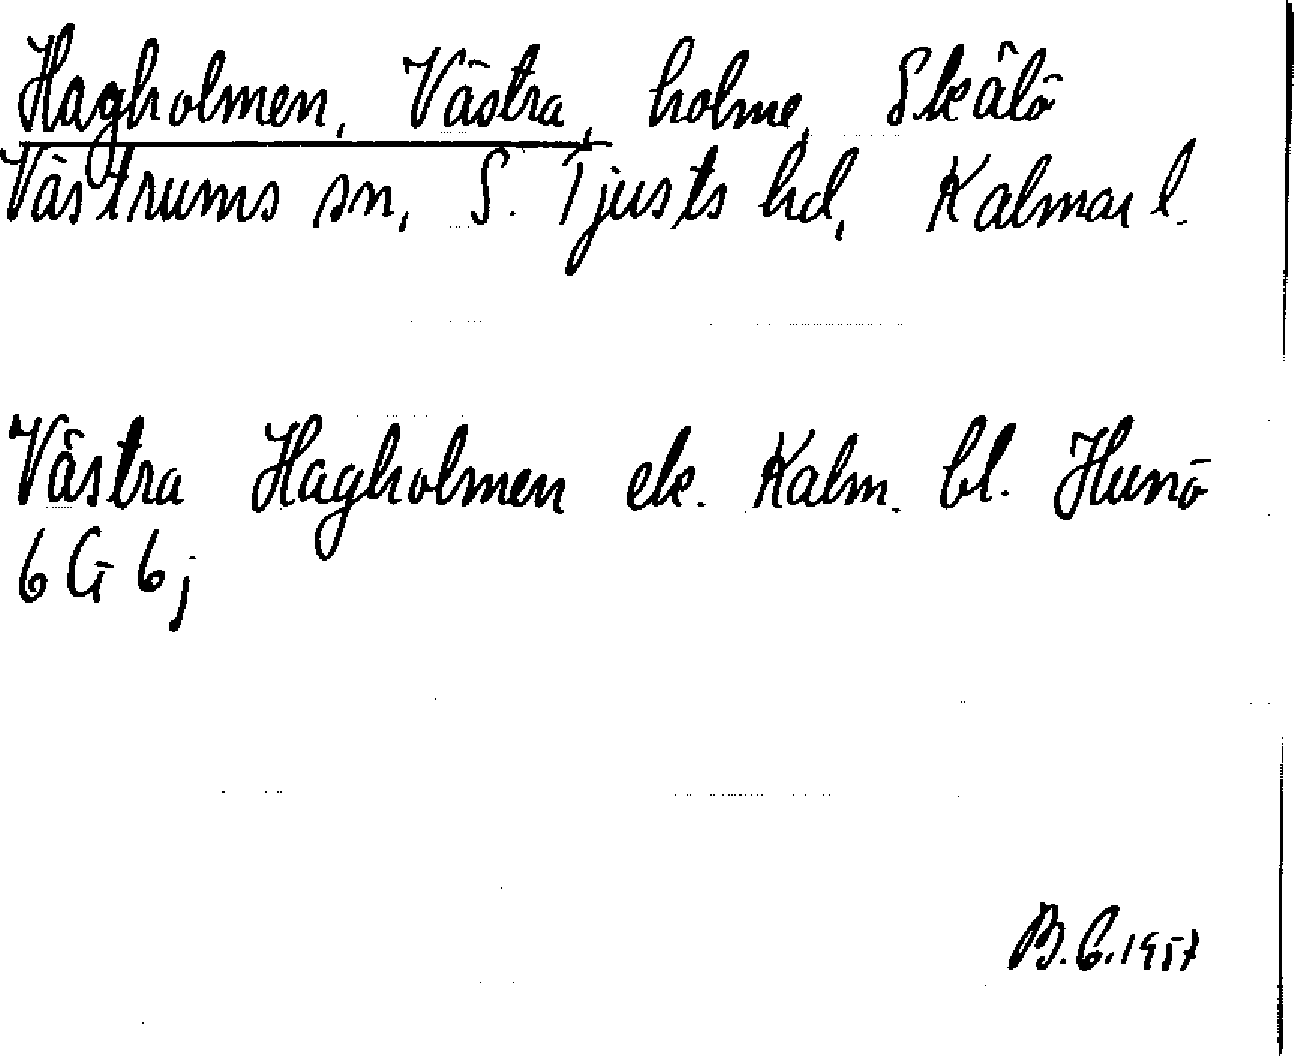 Hagholmen, Västra, holme, Skälö
Västrums sn, S. Tjusts hd, Kalmar l.
Västra Hagholmen ek. Kalm. bl. Hunö
6 G 6 j
B.C. 1957